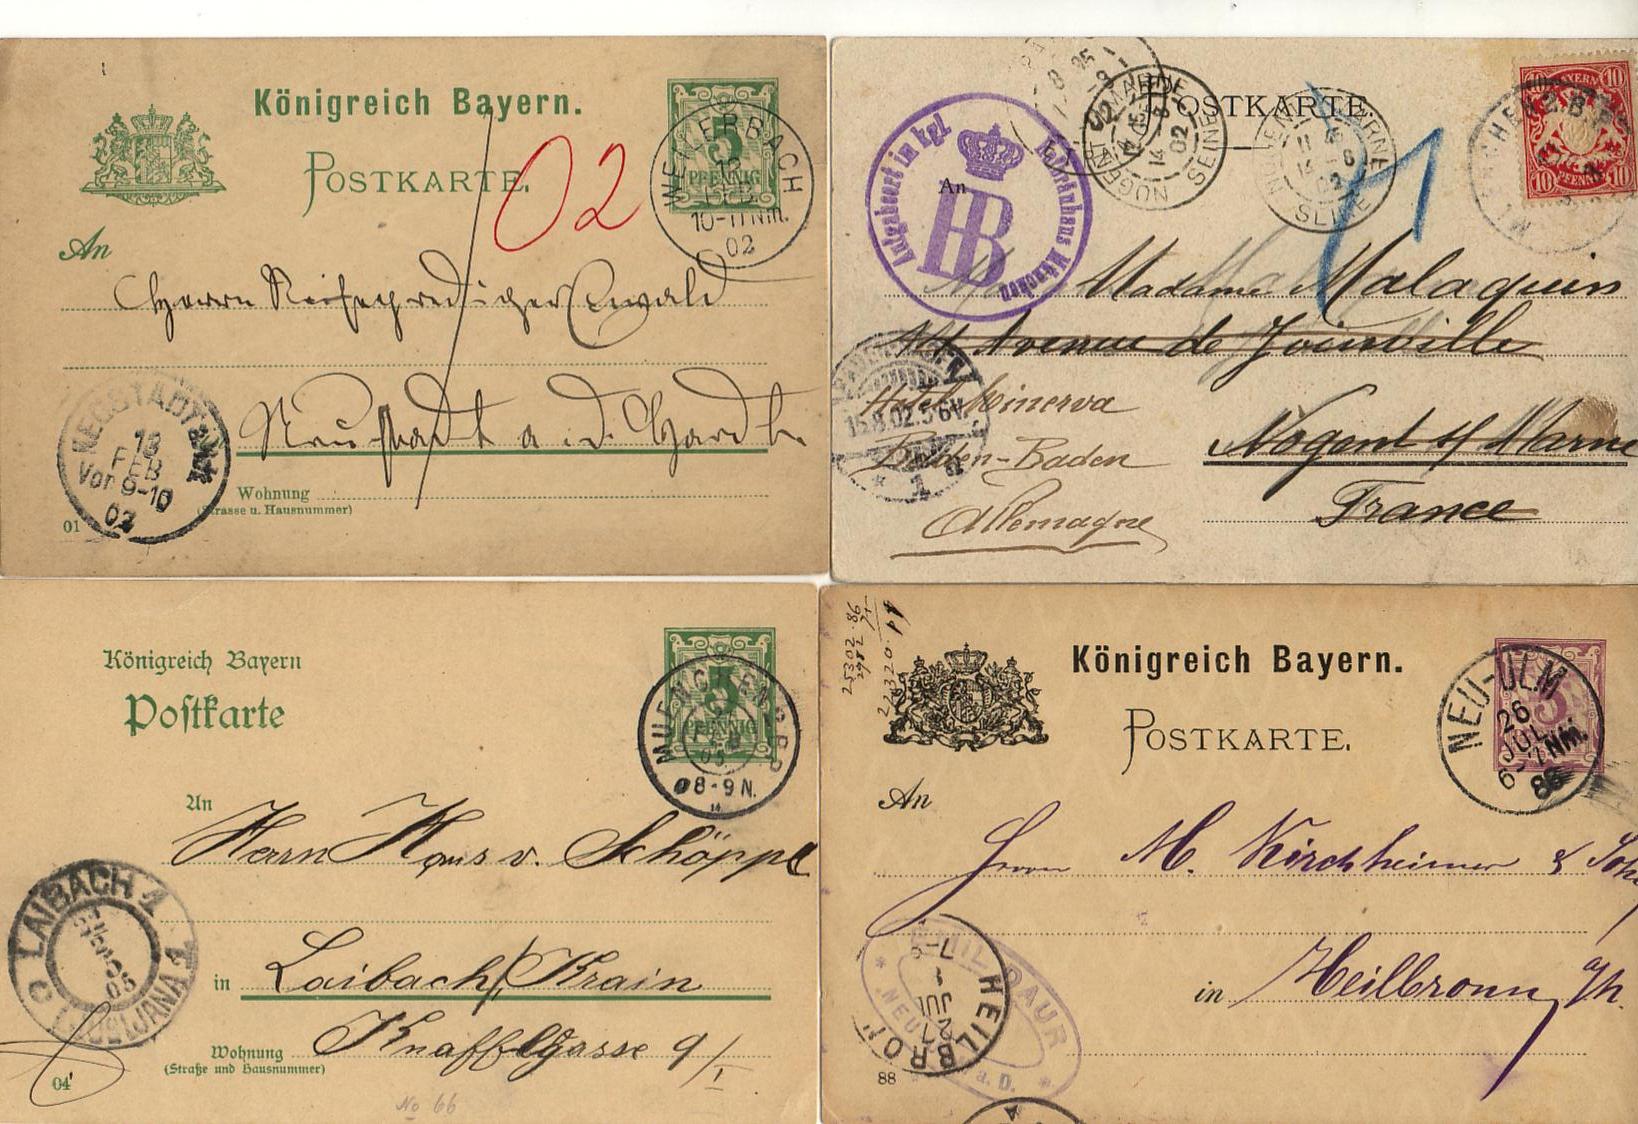 Königreich Bayern.
POSTKARTE.
5
PFENNIG
WEILERBACH
10-11 Nm.
02
02
An
Herrn Reiseprediger Ewald
Neustadt a. d. Hardt
NEUSTADT
18
FEB
Vor 9-10
02
Wohnung
(Strasse u. Hausnummer)
01
POSTKARTE.
BAYERN
10 10
10 PFENNIG 10
MUENCHEN 2 B.P.
NOGENT S. MARNE
14
8
02
SEINE
Aufgabeort in kgl. Hofbräuhaus München
HB
An
Madame Malaquin
Avenue de Joinville
Hotel Minerva
15.8.02.5-6V.
Baden-Baden
Nogent s/ Marne
Allemagne
France
Königreich Bayern
Postkarte
5
PFENNIG
MUENCHEN
FEB
05
8-9 N.
An
Herrn Hans v. Schöppl
LAIBACH 1
LJUBLJANA 1
05
in Laibach/Krain
Wohnung Knafflgasse 9/I
(Straße und Hausnummer)
04
No 66
25302.86
Königreich Bayern.
POSTKARTE.
5
NEU-ULM
26
JUL
6-7 NM.
88
An
Herrn M. Kirchheimer & Sohn
EMIL BAUR
NEU-ULM a. D.
HEILBRONN
27
JUL
7-8
in Heilbronn a/N.
88